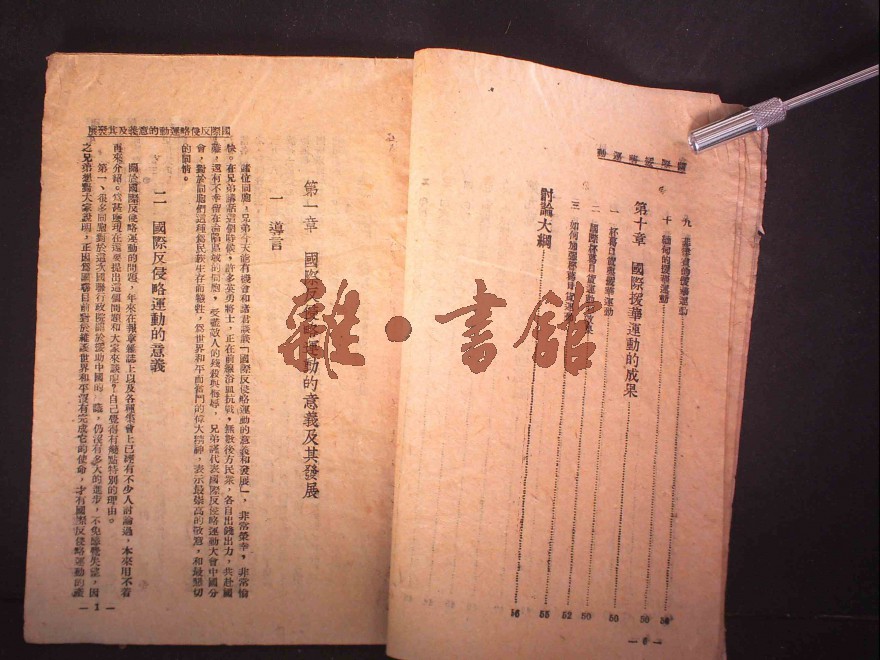 國際援華運動
九 菲律賓的援華運動
十 緬甸的援華運動
第十章 國際援華運動的成果 50
一 杯葛日貨援華運動 50
二 國際杯葛日貨運動的效果 50
三 如何加強杯葛日貨運動 52
討論大綱 55
56
— 6 —
國際反侵略運動的意義及其發展
第一章 國際反侵略運動的意義及其發展
一 導言
諸位同胞,兄弟今天能有機會和諸君談談「國際反侵略運動的意義和發展」,非常榮幸,非常愉
快。在兄弟講話這個時候,許多英勇將士,正在前線浴血抗戰,無數後方民衆,各自出錢出力,共赴國
難,還有不幸留在淪陷區域的同胞,受盡敵人的殘殺與侮辱,兄弟謹代表國際反侵略運動大會中國分
會,對於同胞們這種爲民族生存而犧牲,爲世界和平而奮鬥的偉大精神,表示最崇高的敬意,和最懇切
的同情。
二 國際反侵略運動的意義
關於國際反侵略運動的問題,年來在報章雜誌上以及各種集會上已經有不少人討論過,本來用不着
再來介紹。爲甚麼現在還要提出這個問題和大家來談呢?自己覺得有幾點特別的理由。
第一、很多同胞對於這次國聯行政院關於援助中國的 議,仍沒有多大的進步,不免感覺失望,因
之兄弟想對大家說明,正因爲國聯目前對於維護世界和平沒有完成它的使命,才有國際反侵略運動的產
— 1 —
雜·書館